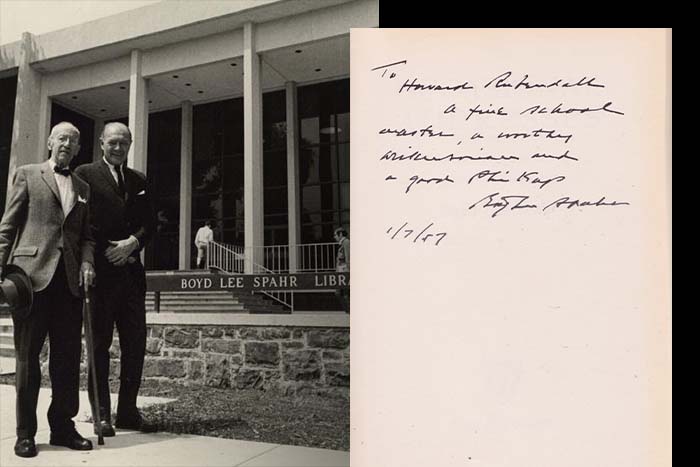 BOYD LEE SPAHR LIBRA
To
Howard Rubendall
a fine school
master, a worthy
Dickinsonian and
a good Phi Kap
Boyd Lee Spahr
1/7/57